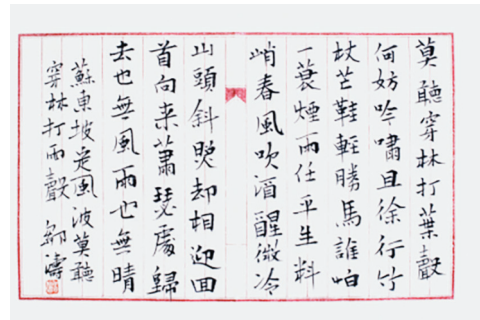 莫聽穿林打葉聲
何妨吟嘯且徐行竹
杖芒鞋輕勝馬誰怕
一蓑煙雨任平生料
峭春風吹酒醒微冷
山頭斜照却相迎回
首向来蕭瑟處歸
去也無風雨也無晴
蘇東坡定風波莫聽
穿林打雨聲 鄒濤